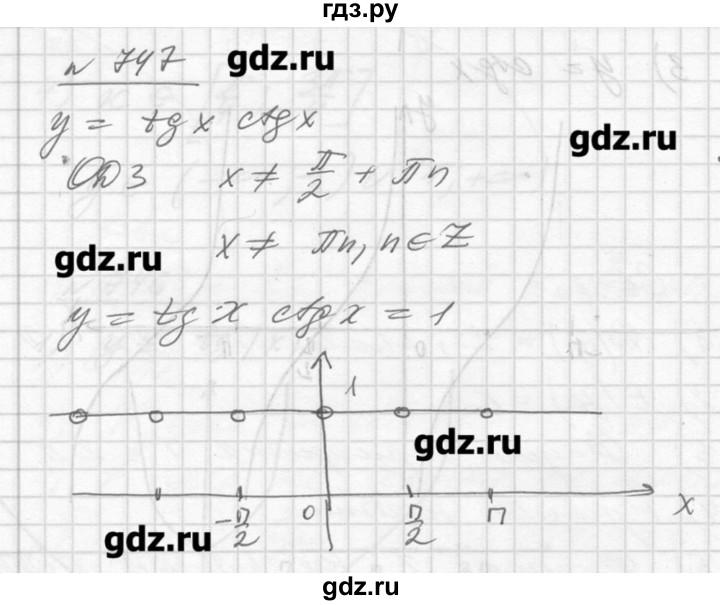 гдз.ру
n 747
gdz.ru
y = tg x ctg x
gdz.ru
ОДЗ x ≠ π/2 + πn
x ≠ πn, n ∈ Z
gdz.ru
y = tg x ctg x = 1
1
gdz.ru
-π/2 0 π/2 π x
gdz.ru
gdz.ru